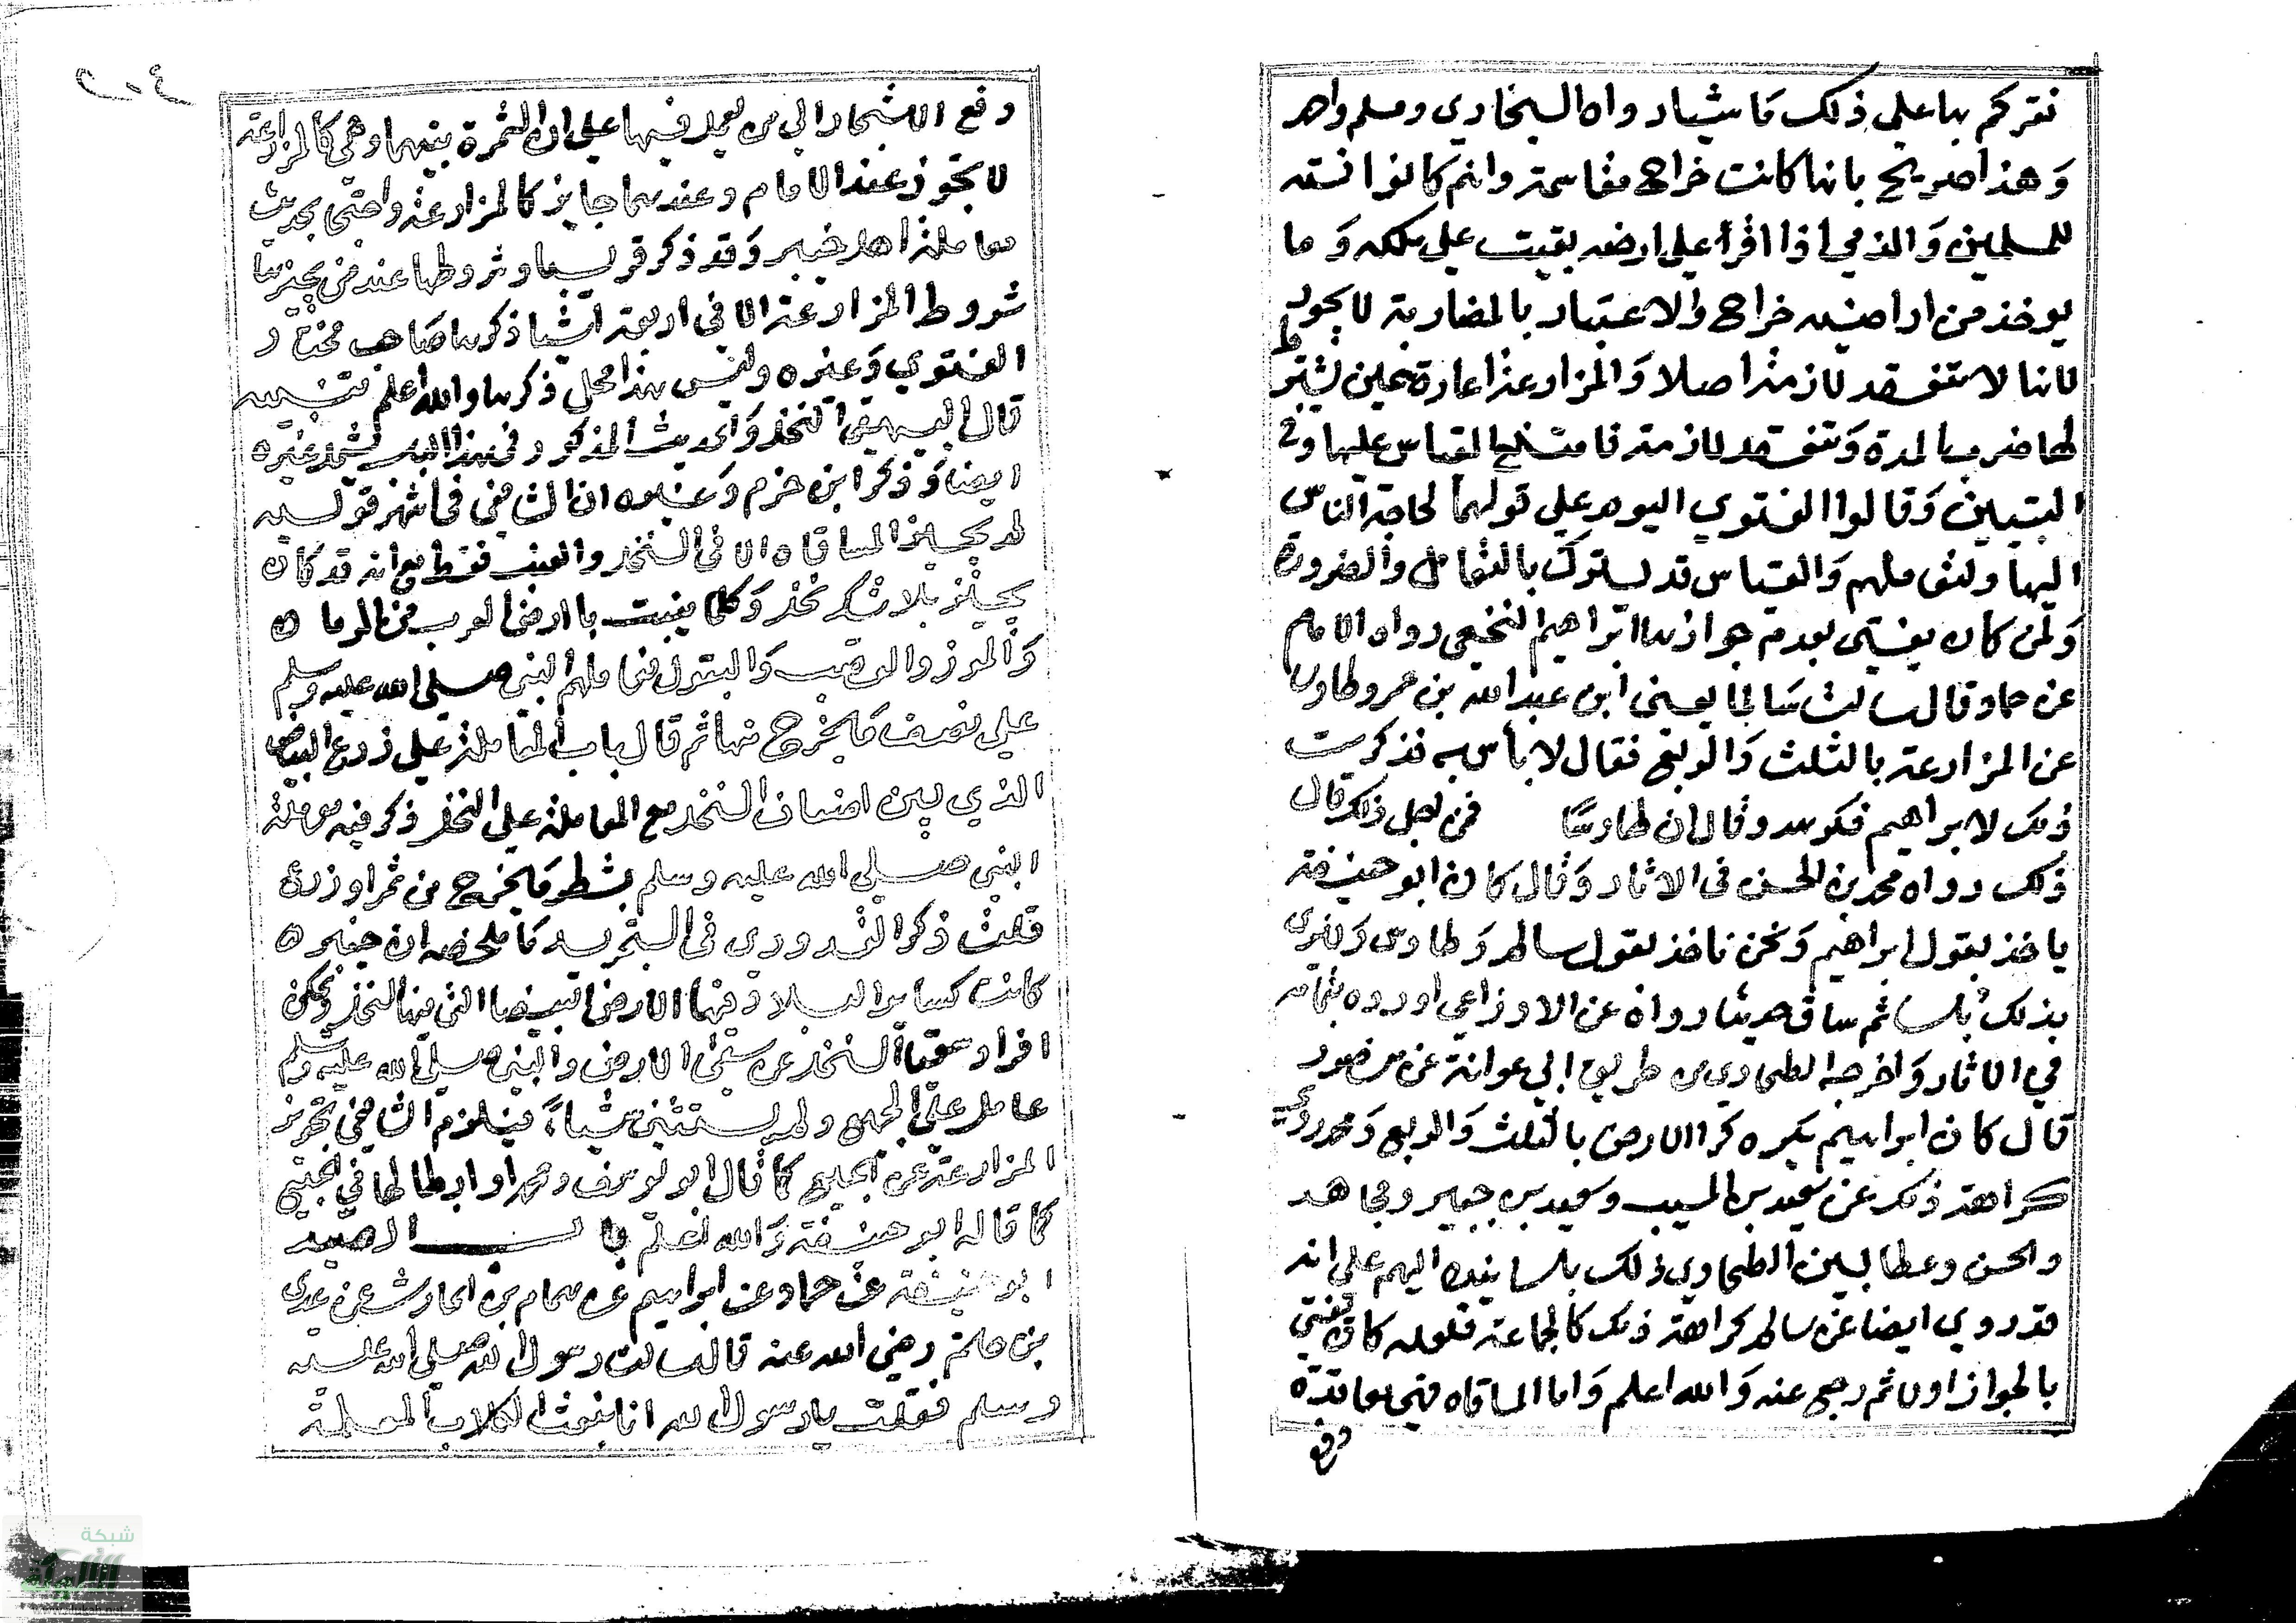 نقركم بها على ذلك ما شينا رواه البخاري ومسلم واحمد
وهذا صريح بانها كانت خراج مقاسمة وانهم كانوا ذمة
للمسلمين والذمي اذا اقر على ارضه بقيت على ملكه وما
يوخذ من اراضيه خراج والاعتبار بالمضاربة لا يجوز
لانها لا تنعقد لازمة اصلا والمزارعة اعارة حين يشترط
لها ضرب المدة وتنعقد لازمة فامتنع القياس عليها وفي
التبيين وقالوا الفتوي اليوم علي قولهما لحاجة الناس
اليها ولتعاملهم والقياس قد يترك بالتعامل والضرورة
وممن كان يفتي بعدم جوازها ابراهيم النخعي رواه الامام
عن حماد قال سالت سالما يعني ابن عبد الله بن عمر وطاوسا
عن المزارعة بالثلث والربع فقال لا بأس به فذكرت
ذلك لابراهيم فكرهه وقال ان طاوسا فمن اجل ذلك قال
ذلك رواه محمد بن الحسن في الاثار وقال كان ابو حنيفة
ياخذ بقول ابراهيم ونحن ناخذ بقول سالم وطاوس ولا نرى
بذلك باسا ثم ساق حديثا رواه عن الاوزاعي اورده بتمامه
في الاثار واخرجه الطحاوي من طريق ابي عوانة عن منصور
قال كان ابراهيم يكره كراء الارض بالثلث والربع وقد روي
كراهة ذلك عن سعيد بن المسيب وسعيد بن جبير ومجاهد
والحسن وعطا لبين الطحاوي ذلك باسانيده اليهم على انه
قد روي ايضا عن سالم كراهة ذلك كالجماعة فلعله كان يفتي
بالجواز اولا ثم رجع عنه والله اعلم واما المساقاه فهي معاقدة
دفع
دفع الاشجار الي من يعمل فيها على ان الثمرة بينهما وهي كالمزارعة
لا تجوز عند الامام وعندهما جايز كالمزارعة واحتج بحديث
معاملة اهل خيبر وقد ذكر قريبا وشروطها عند من يجيزها
شروط المزارعة الا في اربعة اشيا ذكرها صاحب مختار
الفتوي وغيره وليس هذا محل ذكرها والله اعلم تنبيه
قال البيهقي النخل والحديث المذكور في هذا الباب يشمل غيره
ايضا وذكر ابن حزم وغيره ان الشافعي في اشهر قوليه
لم يجيز المساقاه الا في النخل والعنب فقط مع انه قد كان
بخيبر بلا شك نخل وكلما ينبت بارض العرب من الرمان
والموز والقصب والبقول فعاملهم النبي صلى الله عليه وسلم
علي نصف ما يخرج منها ثم قال باب المعاملة على زرع البياض
الذي بين اضعاف النخل مع المعاملة على النخل ذكر فيه معاملة
النبي صلى الله عليه وسلم بشطر ما يخرج من ثمر او زرع
قلت ذكر القدوري في التجريد ما ملخصه ان خيبر
كانت كساير البلاد فيها الارض البيضا التي فيها النخل ويمكن
افراد سقي النخل عن سقي الارض والنبي صلى الله عليه وسلم
عامل على الجميع ولم يستثني شياء فيلزم الشافعي تجويز
المزارعة عن الجميع كما قال ابو يوسف ومحمد او ابطالها في الجميع
كما قاله ابو حنيفة والله اعلم باب الصيد
ابو حنيفة عن حماد عن ابراهيم عن همام بن الحارث عن عدي
بن حاتم رضي الله عنه قال سالت رسول الله صلى الله عليه
وسلم فقلت يا رسول الله انا نبعث الكلاب المعلمة
شبكة
الألوكة